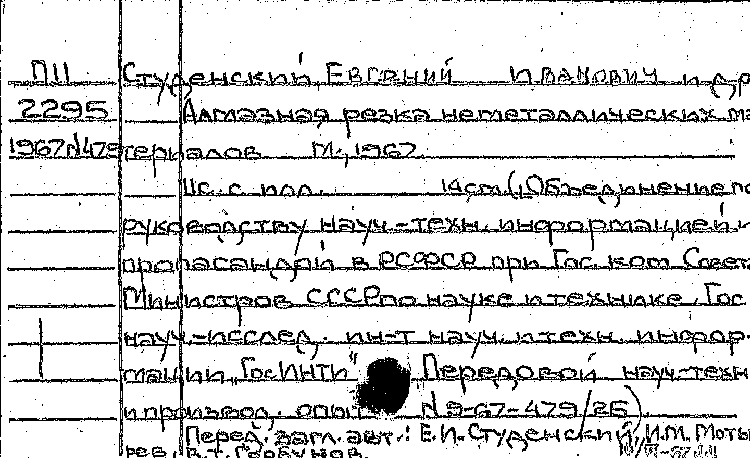 П11 Студенский, Евгений Иванович и др
2295 Алмазная резка неметаллических ма
1967№479 териалов М., 1967.
11с. с илл. 14см. (Объединение по
руководству науч.-техн. информацией и
пропагандой в РСФСР при Гос. ком. Совета
Министров СССР по науке и технике. Гос
науч.-исслед. ин-т науч. и техн. инфор-
мации "ГосИНТИ" Передовой науч.-техн
и производ. опыт №9-67-479/26)
Перед. загл. авт.: Е.И. Студенский, И.М. Моты
рев, В.Т. Горбунов.